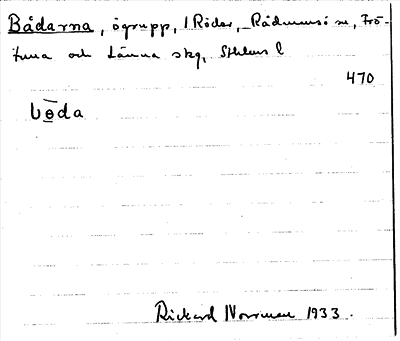 Bådarna, ögrupp, i Röder, Rådmansö sn, Frö-
tuna och Länna skg, Sthlms l
470
bōda
Rickard Norrman 1933.